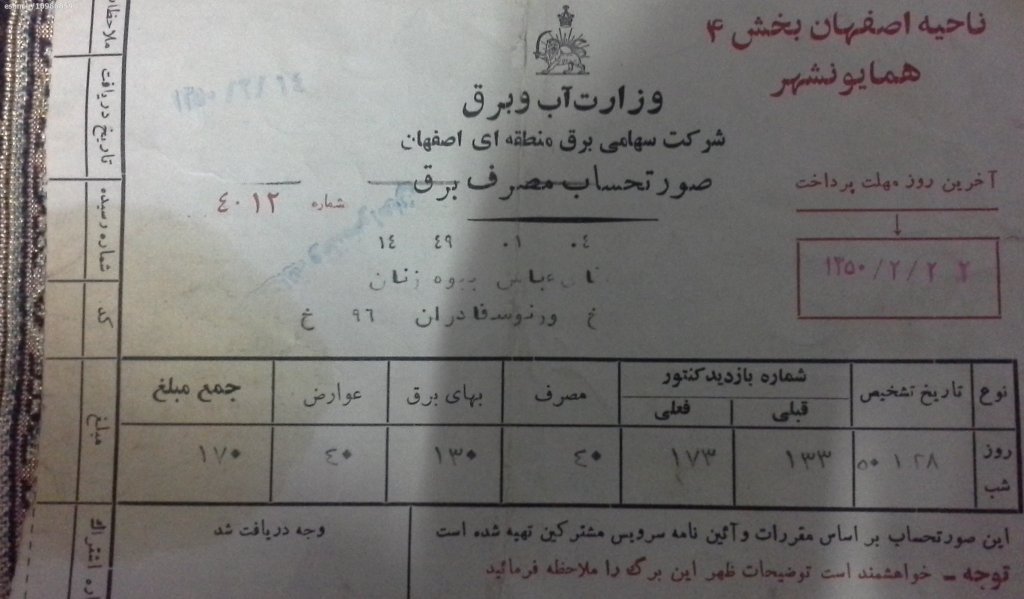 ناحیه اصفهان بخش ۴
همایونشهر
وزارت آب وبرق
شرکت سهامی برق منطقه ای اصفهان
صورتحساب مصرف برق
شماره ۴۰۱۲
آخرین روز مهلت پرداخت
۱۳۵۰/۲/۲ ۲
۱۴ ۴۹ ۰۱ ۰۴
عباس بیوه زنان
خ ورنوسفادران ۹۶ خ
نوع
تاریخ تشخیص
شماره بازدیدکنتور
قبلی
فعلی
مصرف
بهای برق
عوارض
جمع مبلغ
روز
شب
۵۰ ۱ ۲۸
۱۳۳
۱۷۳
۴۰
۱۳۰
۴۰
۱۷۰
این صورتحساب بر اساس مقررات و آئین نامه سرویس مشترکین تهیه شده است
توجه ـ خواهشمند است توضیحات ظهر این برگ را ملاحظه فرمائید
وجه دریافت شد
ملاحظات
تاریخ دریافت
شماره رسیده
کد
مبلغ
اشتراک